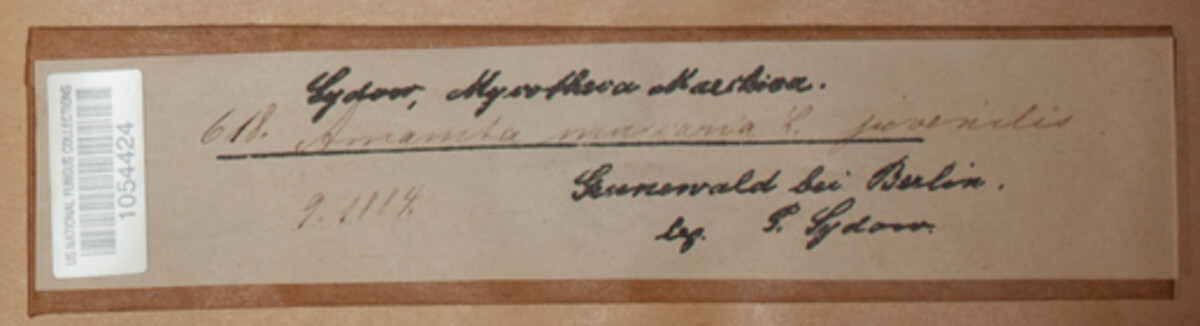 US NATIONAL FUNGUS COLLECTIONS
1054424
Sydow, Mycotheca Marchica.
618. Amanita muscaria L. juvenilis
9. 1884.
Grunewald bei Berlin.
leg. P. Sydow.